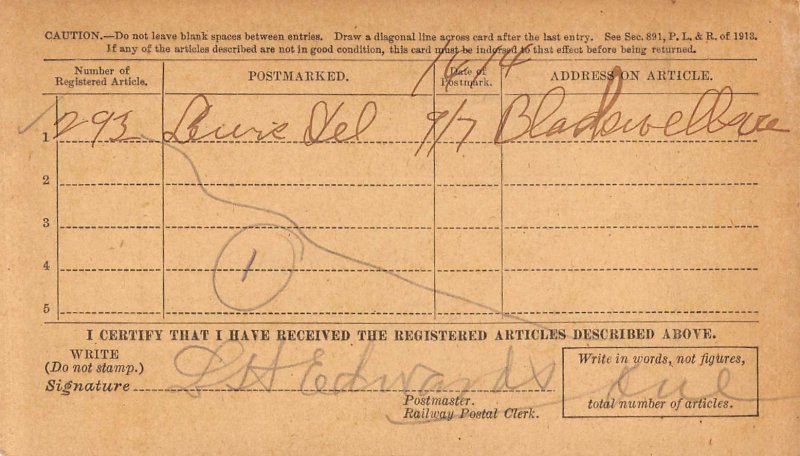 CAUTION.—Do not leave blank spaces between entries. Draw a diagonal line across card after the last entry. See Sec. 891, P. L. & R. of 1913.
If any of the articles described are not in good condition, this card must be indorsed to that effect before being returned.
1614
Number of Registered Article. POSTMARKED. Date of Postmark. ADDRESS ON ARTICLE.
1 293 Lewis Del 9/7
2
3
4 1
5
I CERTIFY THAT I HAVE RECEIVED THE REGISTERED ARTICLES DESCRIBED ABOVE.
WRITE
(Do not stamp.)
Signature L H Edwards
Postmaster.
Railway Postal Clerk.
Write in words, not figures,
One
total number of articles.